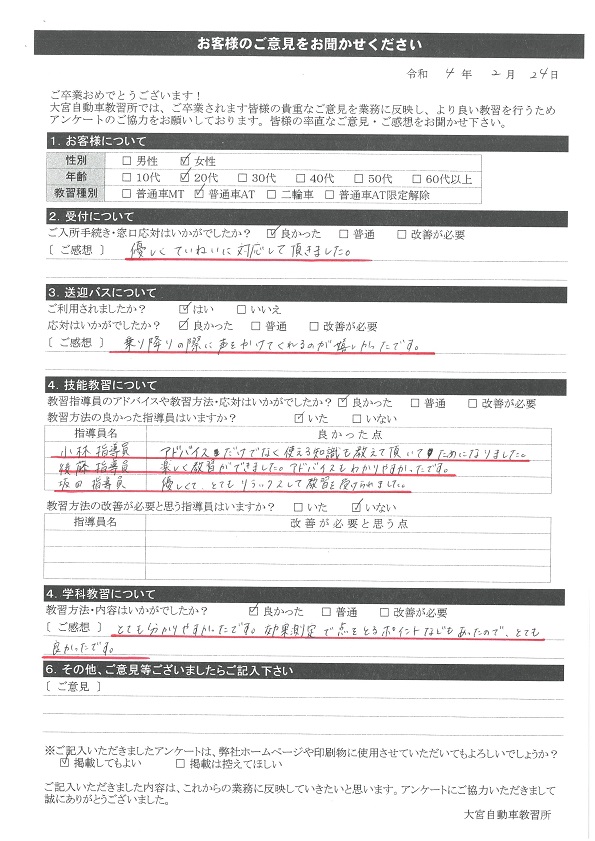 お客様のご意見をお聞かせください
令和 4 年 2 月 24 日
ご卒業おめでとうございます！
大宮自動車教習所では、ご卒業されます皆様の貴重なご意見を業務に反映し、より良い教習を行うため
アンケートのご協力をお願いしております。皆様の率直なご意見・ご感想をお聞かせ下さい。
1. お客様について
性別 □ 男性 ☑ 女性
年齢 □ 10代 ☑ 20代 □ 30代 □ 40代 □ 50代 □ 60代以上
教習種別 □ 普通車MT ☑ 普通車AT □ 二輪車 □ 普通車AT限定解除
2. 受付について
ご入所手続き・窓口応対はいかがでしたか？ ☑ 良かった □ 普通 □ 改善が必要
[ ご感想 ] 優しくていねいに対応して頂きました。
3. 送迎バスについて
ご利用されましたか？ ☑ はい □ いいえ
応対はいかがでしたか？ ☑ 良かった □ 普通 □ 改善が必要
[ ご感想 ] 乗り降りの際に声をかけてくれるのが嬉しかったです。
4. 技能教習について
教習指導員のアドバイスや教習方法・応対はいかがでしたか？ ☑ 良かった □ 普通 □ 改善が必要
教習方法の良かった指導員はいますか？ ☑ いた □ いない
指導員名 良かった点
小林 指導員 アドバイスだけでなく使える知識も教えて頂いてためになりました。
後藤 指導員 楽しく教習ができました。アドバイスもわかりやすかったです。
坂田 指導員 優しくて、とてもリラックスして教習を受けられました。
教習方法の改善が必要と思う指導員はいますか？ □ いた ☑ いない
指導員名 改善が必要と思う点
4. 学科教習について
教習方法・内容はいかがでしたか？ ☑ 良かった □ 普通 □ 改善が必要
[ ご感想 ] とても分かりやすかったです。効果測定で点をとるポイントなどもあったので、とても
良かったです。
6. その他、ご意見等ございましたらご記入下さい
[ ご意見 ]
※ご記入いただきましたアンケートは、弊社ホームページや印刷物に使用させていただいてもよろしいでしょうか？
☑ 掲載してもよい □ 掲載は控えてほしい
ご記入いただきました内容は、これからの業務に反映していきたいと思います。アンケートにご協力いただきまして
誠にありがとうございました。
大宮自動車教習所